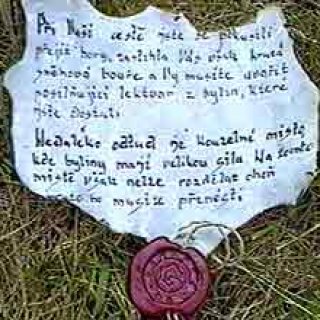 Při Vaší cestě jste se pokusili
přejít hory, zastihla Vás však krutá
sněhová bouře a Vy musíte uvařit
posilňující lektvar z bylin, které
jste dostali.
Nedaleko odtud je kouzelné místo,
kde byliny mají velikou sílu. Na tomto
místě však nelze rozdělat oheň
musíte přenésti